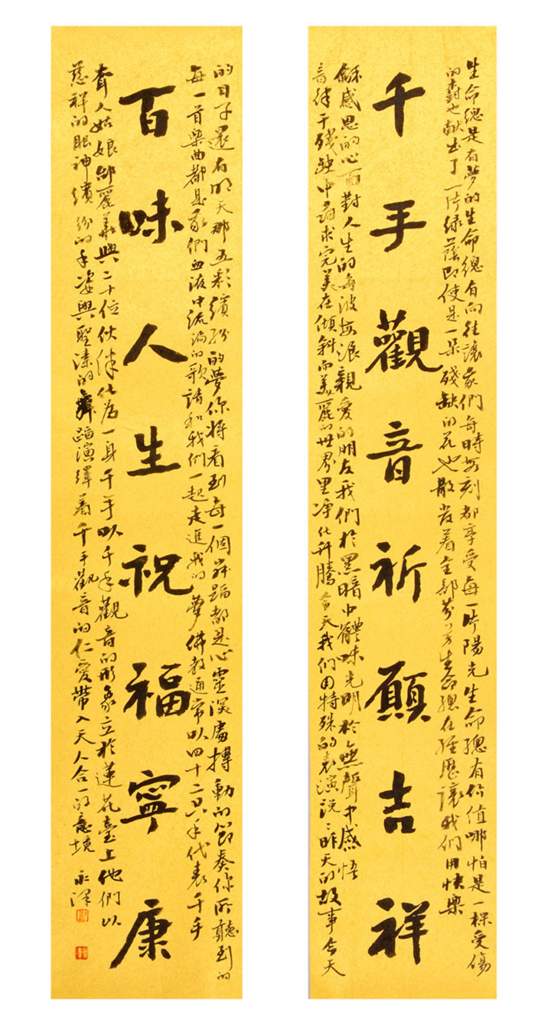 生命總是有夢的生命總有向往讓我們每時每刻都享受每一片陽光生命總有價值哪怕是一棵受傷
的樹也獻出了一片綠蔭即使是一朵殘缺的花也散發着全部芬芳生命總在經歷讓我們用快樂
千手觀音祈願吉祥
穌感恩的心面對人生的每波每浪親愛的朋友我們於黑暗中體味光明於無聲中感悟
音律于殘缺中尋求完美在傾斜而美麗的世界里淨化升騰今天我們用特殊的表演說說昨天的故事今天
的日子還有明天那五彩繽紛的夢你將看到每一個舞蹈都是心靈深處搏動的節奏你所聽到的
每一首樂曲都是我們血液中流淌的歌請和我們一起走進我的夢佛教通常以四十二只手代表千手
百味人生祝福寧康
聾人姑娘邰麗華與二十位伙伴化爲一身千手以千手觀音的形象立於蓮花臺上他們以
慈祥的眼神繽紛的手姿與聖潔的舞蹈演繹着千手觀音的仁愛帶入天人合一的意境 永澤